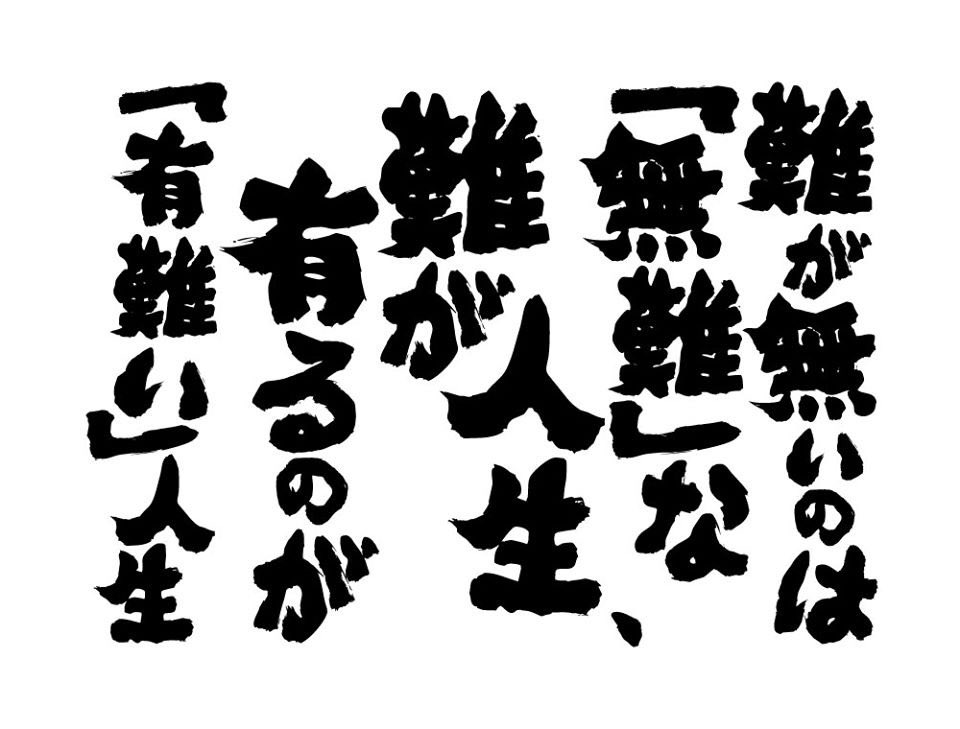 難が無いのは
「無難」な
人生、
難が
有るのが
「有難い」人生